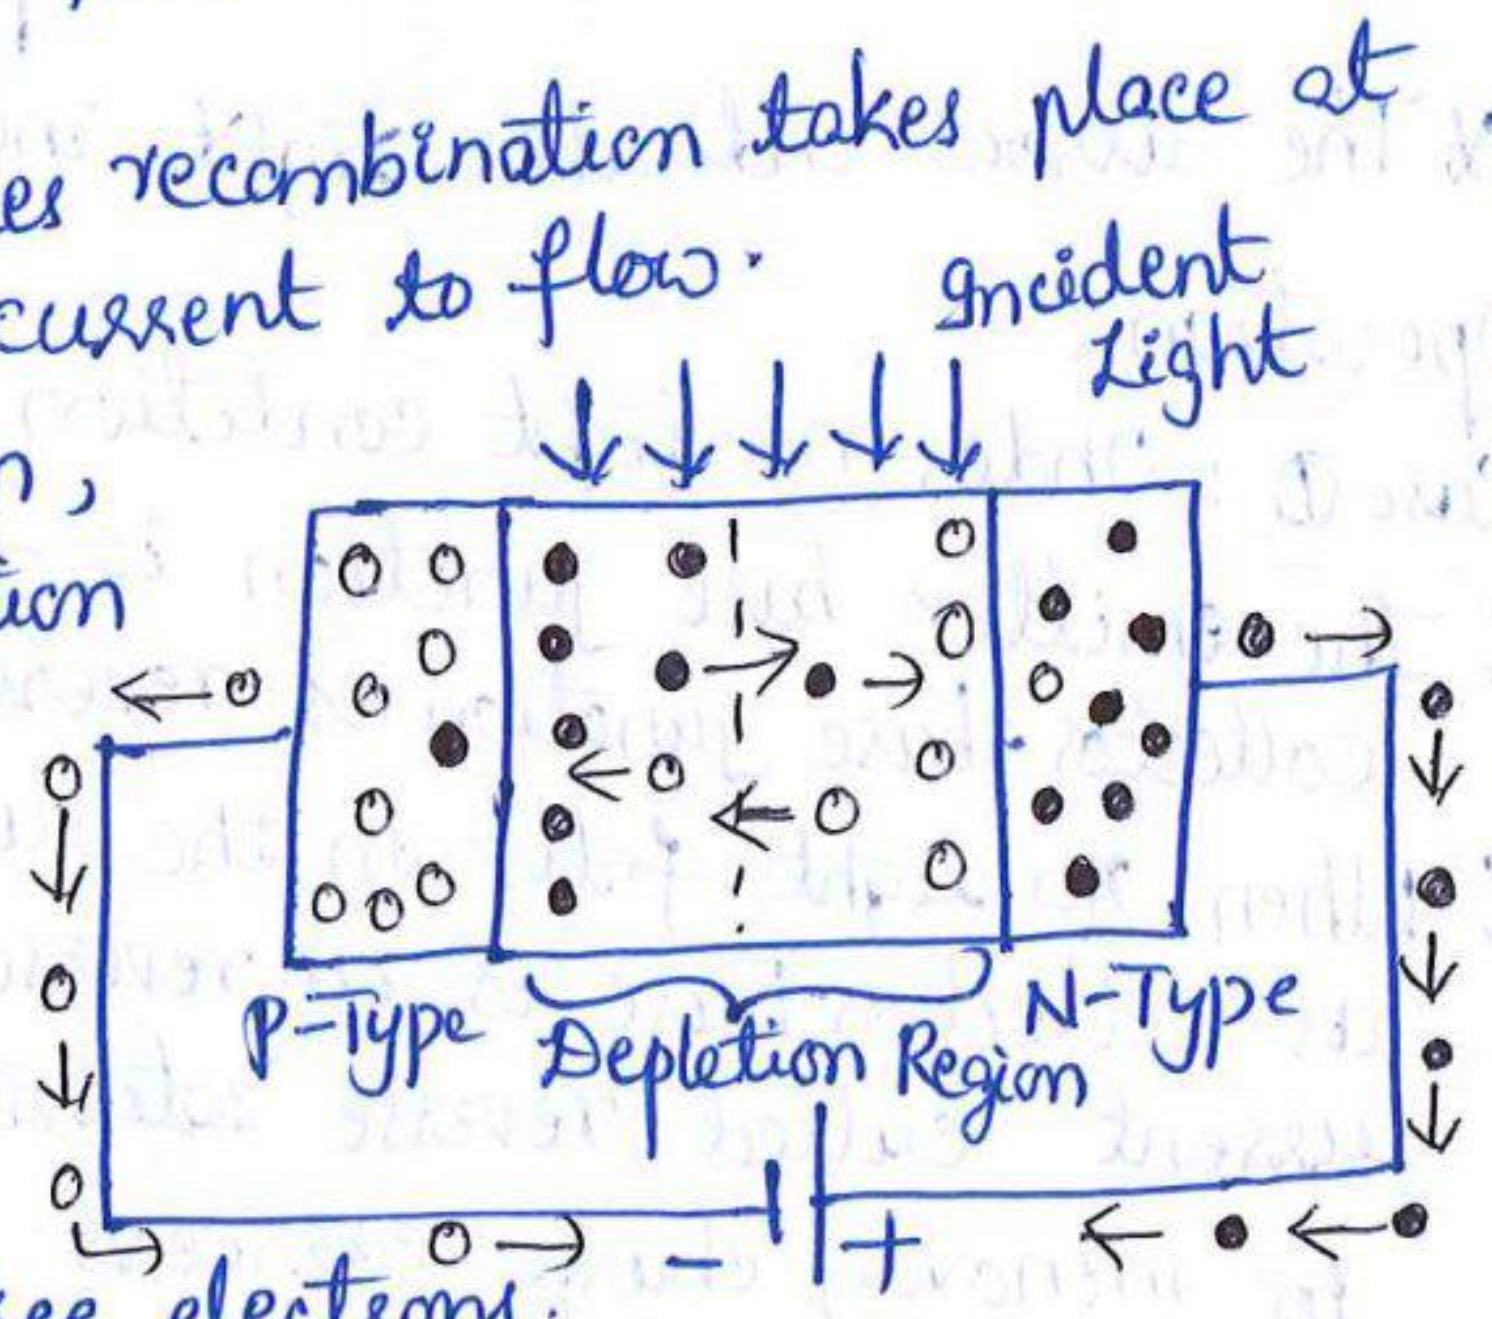 es recombination takes place at
current to flow.
Incident
Light
n,
tion
P-Type
Depletion Region
N-Type
- +
ee electrons.